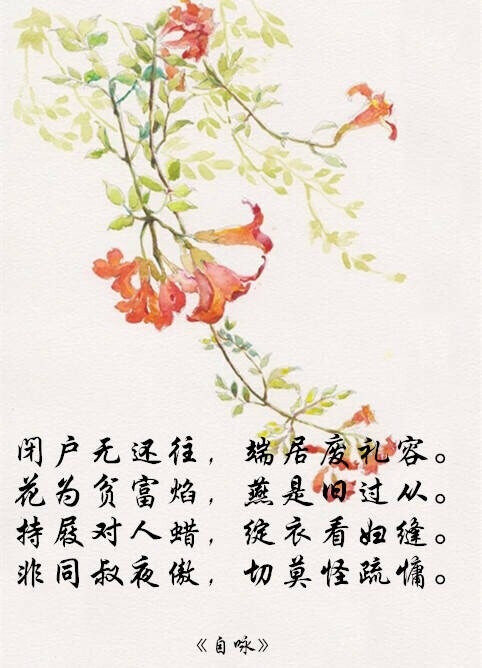 闭户无还往，端居废礼容。
花为贫富焰，燕是旧过从。
持屐对人蜡，绽衣看妇缝。
非同叔夜傲，切莫怪疏慵。
《自咏》